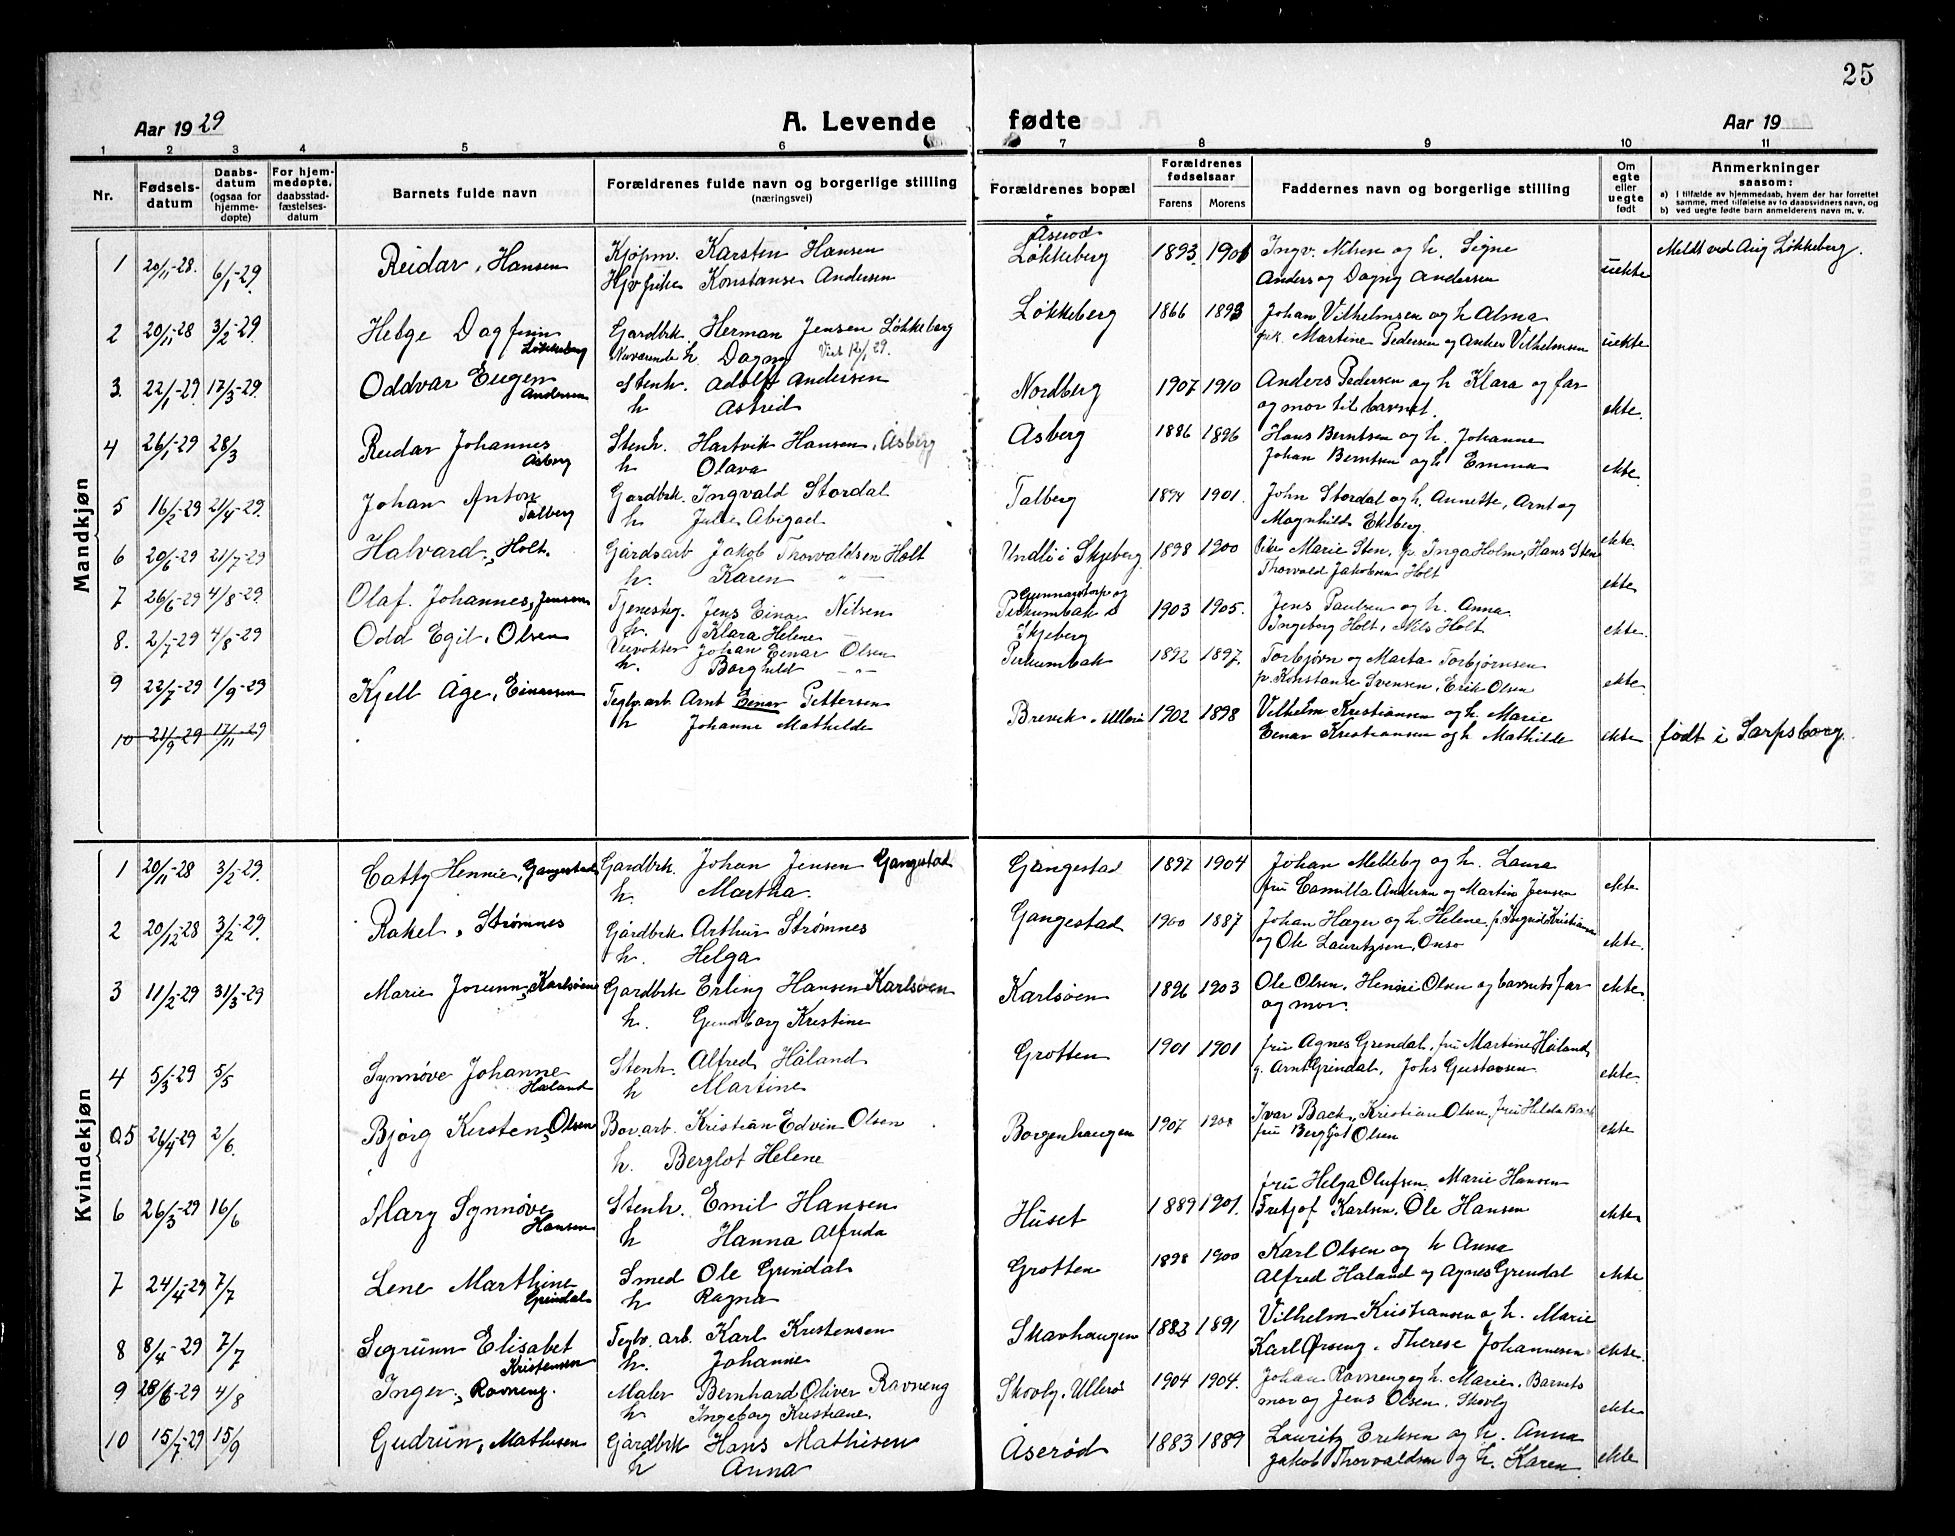 25
Aar 1929 A. Levende fødte Aar 19
1 2 3 4 5 6 7 8 9 10 11
Nr. Fødsels-datum Daabs-datum (ogsaa for hjemme-døpte) For hjem-medøpte, daabsstad-fæstelses-datum Barnets fulde navn Forældrenes fulde navn og borgerlige stilling (næringsvei) Forældrenes bopæl Forældrenes fødselsaar Farens Morens Faddernes navn og borgerlige stilling Om egte eller uegte født Anmerkninger saasom: a) I tilfælde av hjemmedaab, hvem der har forrettet samme, med tilføielse av to daabsvidners navn, og b) ved uegte fødte barn anmelderens navn m. v.
Mandkjøn
1 20/11-28. 6/1-29. Reidar, Hansen Kjøpm. Karsten Hansen Åserød Løkkeberg 1893 1901 Ingv. Nilsen og h. Signe uekte Meldt ved Aug Løkkeberg.
Konstanse Andersen Anders og Dagny Andersen
2 20/11-28 3/2-29. Helge Dagfinn Løkkeberg Gardbrk. Herman Jensen Løkkeberg Løkkeberg 1866 1893 Johan Vilhelmsen og h Alma uekte
Nuværende h. Dagny Viet 12/1 29. Martine Pedersen og Anker Vilhelmsen
3. 22/1-29. 17/3-29. Oddvar Eugen Andersen Stenh. Adolf Andersen Nordberg 1907 1910 Anders Pedersen og h Klara og far ekte.
h Astrid og mor til barnet.
4 26/1-29 28/3 Reidar Johannes Åsberg Stenh. Hartvik Hansen, Åsberg Åsberg 1886 1896 Hans Berntsen og h. Johanne ekte.
h Olava Johan Berntsen og h Emma
5 16/2-29 21/4-29. Johan Anton Talberg Gardbrk. Ingvald Stordal Talberg 1894 1901. John Stordal og h. Annette, Arnt og ekte.
h Julie Abigael Magnhild Ekeberg.
6 20/6-29 21/7-29 Halvard, Holt. Gårdsarb Jakob Thorvaldsen Holt Undli i Skjeberg 1898 1900 Marie Sten, Inga Holm, Hans Sten ekte
h. Karen -"- Thorvald Jakobsen Holt
7 26/6-29 4/8-29. Olaf. Johannes, Jensen Tjenestg. Jens Einar Nilsen Gunnarstorp og Pirkumbak i Skjeberg 1903 1905. Jens Paulsen og h. Anna ekte.
h. Klara Helene Ingeborg Holt, Nils Holt
8. 2/7-29 4/8-29 Odd Egil, Olsen Veivokter Johan Einar Olsen Pirkumbak 1892 1897. Torbjørn og Marta Torbjørnsen ekte.
h. Borghild -"- Konstanse Svensen, Erik Olsen
9 22/7-29 1/9-29 Kjell Åge, Einarsen Teglv.arb. Arnt Einar Pettersen Brevik, Ullerø 1902 1898 Vilhelm Kristiansen og h. Marie ekte
h Johanne Mathilde Einar Kristiansen og h Mathilde
10 21/9-29 17/11-29 født i Sarpsborg.
Kvindekjøn
1 20/11-28 3/2-29. Catty Hennie, Gangestad Gardbrk. Johan Jensen Gangestad Gangestad 1897 1904 Johan Melleby og h. Laura ekte.
h. Martha. fru Camilla Andersen og Martin Jensen
2 20/12-28 3/2-29. Rakel, Strømnes Gårdbrk Arthur Strømnes Gangestad 1900 1887 Johan Hager og h. Helene, Ingrid Kristiansen ekte.
h. Helga og Ole Lauritzsen, Onsø
3 11/2-29 31/3-29 Marie Jorunn, Karlsøen Gardbrk Erling Hansen Karlsøen Karlsøen 1896 1903 Ole Olsen, Henni Olsen og barnets far ekte.
h. Gundborg Kristine og mor.
4 5/3-29 5/5 Synnøve Johanne Håland Stenh. Alfred Håland Grotten 1901 1901 fru Agnes Grendal, fru Martine Håland, ekte.
h Martine g. Arnt Grindal, Johs Gustavsen
5 26/4-29 2/6. Bjørg Kirsten, Olsen Bov.arb. Kristian Edvin Olsen Borgenhaugen 1907 1908 Ivar Back, Kristian Olsen, fru Hilda Back ekte
h. Berglot Helene fru Bergljot Olsen
6 26/3-29 16/6 Mary Synnøve Hansen Stenh. Emil Hansen Huset 1889 1901. fru Helga Olufsen, Marie Hansen ekte
h Hanna Alfrida Fritjof Karlsen, Ole Hansen
7 24/4-29 7/7 Lene Marthine Grindal Smed Ole Grindal Grotten 1898 1900 Karl Olsen og h Anna ekte
h Ragna Alfred Haland og Agnes Grendal
8 8/4-29 7/7 Segrunn Elisabet Kristensen Teglv. arb. Karl Kristensen Skavhaugen 1883 1891 Vilhelm Kristiansen og h. Marie ekte.
h. Johanne Karl Ørseng, Therese Johannesen
9 28/6-29 4/8 Inger, Ravneng. Maler Bernhard Oliver Ravneng Skovly, Ullerø 1904 1904. Johan Ravneng og h. Marie. Barnets ekte
h Ingeborg Kristiane. mor og Jens Olsen. Skovly
10 15/7-29 15/9 Gudrun, Mathisen Gårdbrk Hans Mathisen Åserød 1883 1889 Lauritz Eriksen og h. Anna ekte
h Anna Jakob Thorvaldsen og h. Karen.